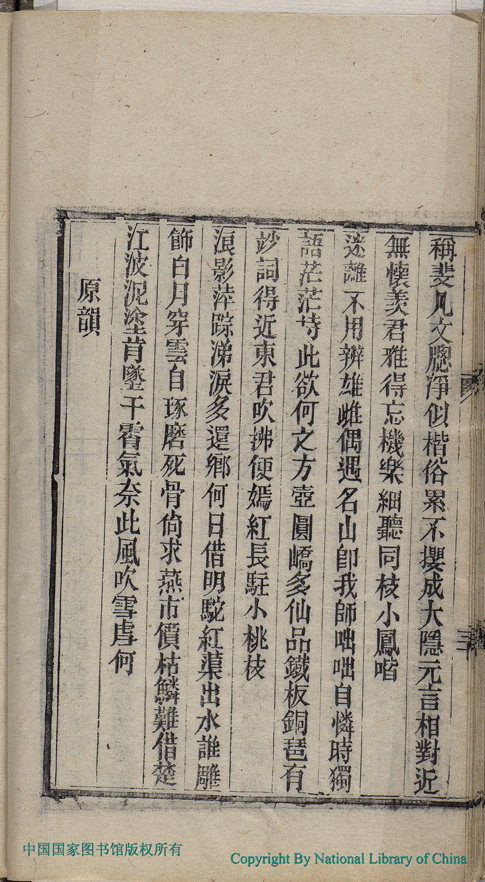 稱斐几文牕淨似楷俗累不攖成大隱元言相對近
無懷羨君雅得忘機樂細聽同枝小鳳喈
迷離不用辨雄雌偶遇名山卽我師咄咄自憐時獨
語茫茫持此欲何之方壺圓嶠多仙品鐵板銅琶有
玅詞得近東君吹拂便嫣紅長駐小桃枝
浪影萍踪涕淚多還鄉何日借明駝紅蕖出水誰雕
飾白月穿雲自琢磨死骨尙求燕市價枯鱗難借楚
江波泥塗肯墜干霄氣奈此風吹雪虐何
原韻
三
中国国家图书馆版权所有
Copyright By National Library of China